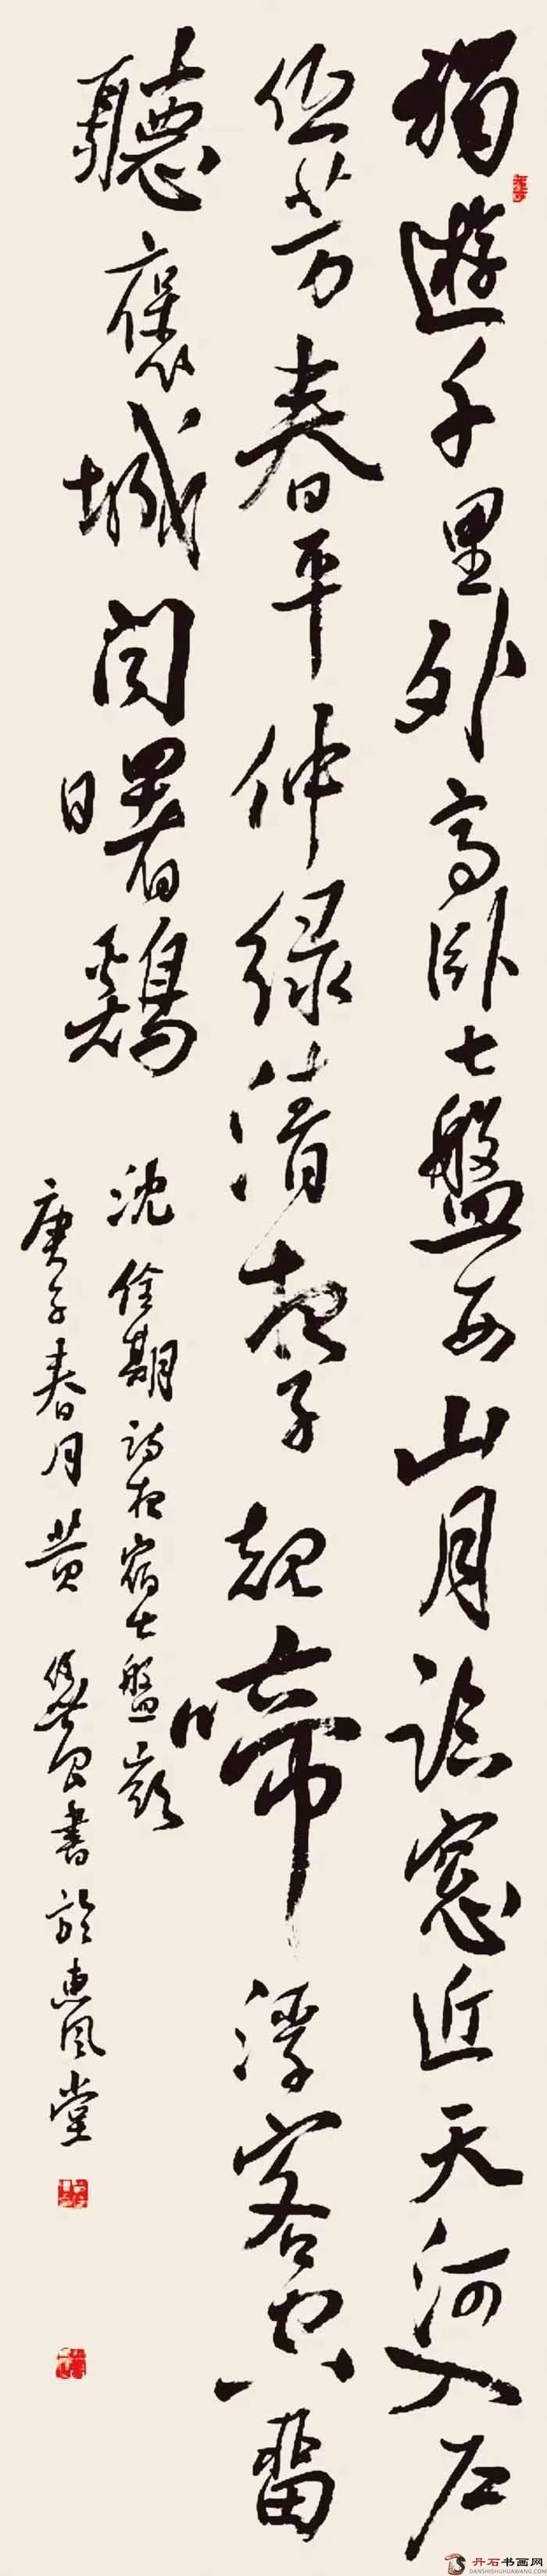 獨遊千里外高卧七盤西山月臨窓近天河入户
低芳春平仲緑清夜子規啼浮客空留
聽褒城聞曙鷄
沈佺期詩夜宿七盤嶺
庚子春月黄書於惠風堂
丹石书画网
DANSHISHUHUAWANG.COM